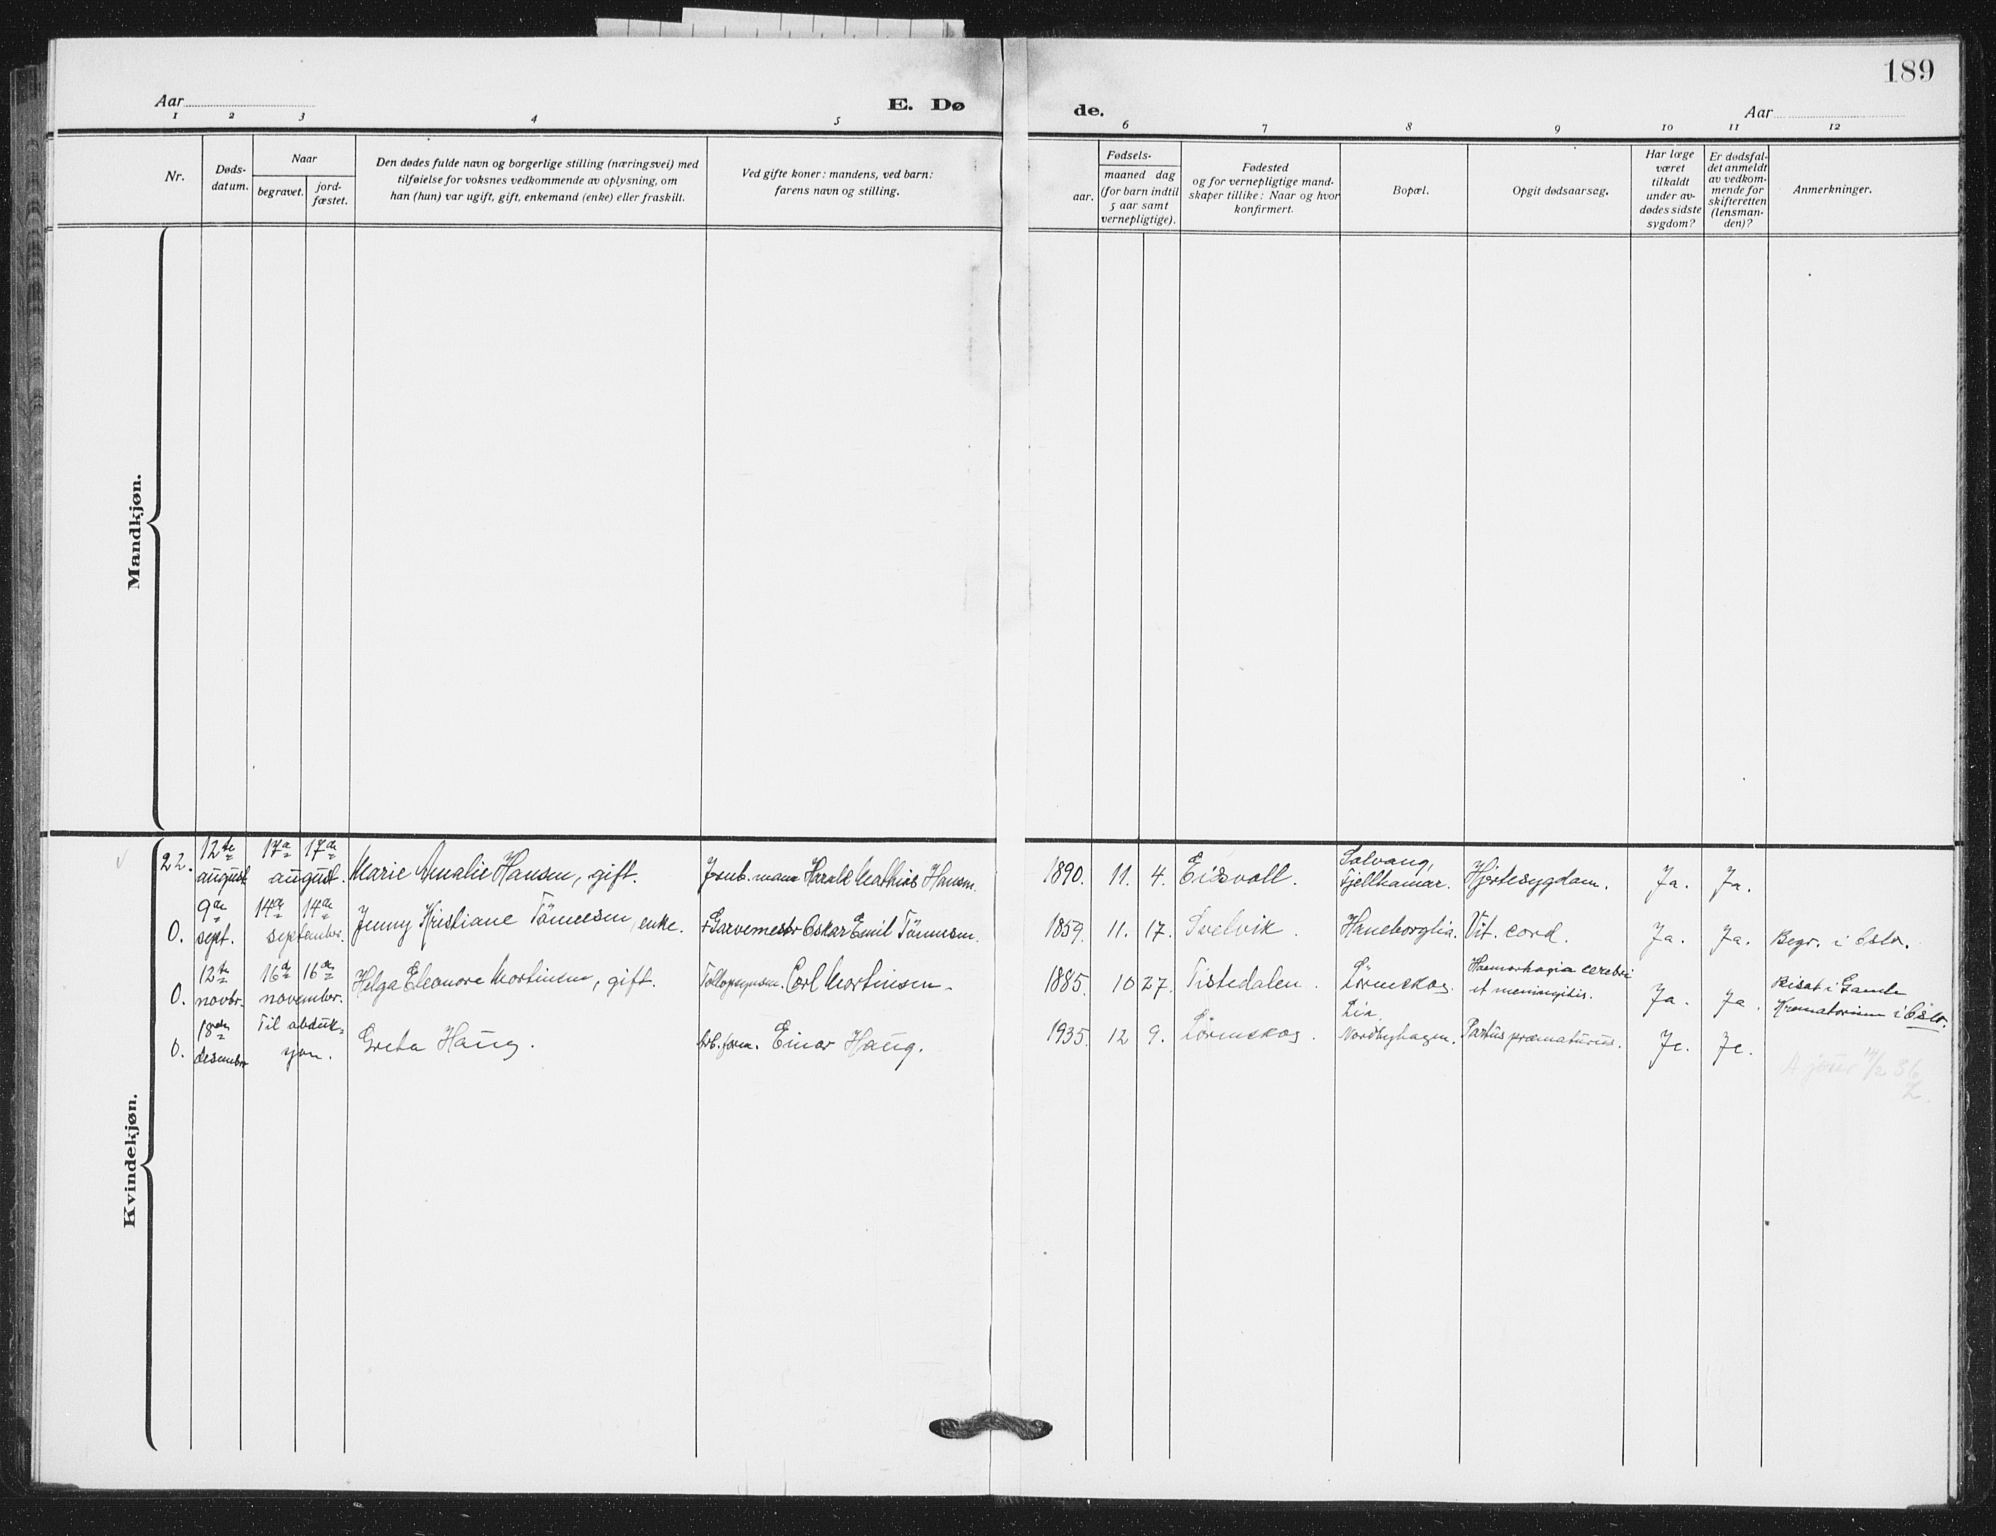 189
Aar
E. Dø
de.
Aar
1 2 3 4 5 6 7 8 9 10 11 12
Nr.
Døds-
datum.
Naar
begravet.
jord-
fæstet.
Den dødes fulde navn og borgerlige stilling (næringsvei) med
tilføielse for voksnes vedkommende av oplysning, om
han (hun) var ugift, gift, enkemand (enke) eller fraskilt.
Ved gifte koner: mandens, ved barn:
farens navn og stilling.
Fødsels-
aar.
maaned dag
(for barn indtil
5 aar samt
vernepligtige).
Fødested
og for vernepligtige mand-
skaper tillike: Naar og hvor
konfirmert.
Bopæl.
Opgit dødsaarsag.
Har læge
været
tilkaldt
under av-
dødes sidste
sygdom?
Er dødsfal-
det anmeldt
av vedkom-
mende for
skifteretten
(lensman-
den)?
Anmerkninger.
Mandkjøn.
Kvindekjøn.
22. 12te august 17de 17de august. Marie Amalie Hansen, gift. Jernb.mann Harald Mathias Hansen. 1890. 11. 4. Eidsvoll. Solvang, Fjellhamar. Hjertesygdom. Ja. Ja.
0. 9de sept. 14de 14de september. Jenny Kristiane Tönnesen, enke. Garvemester Oskar Emil Tönnesen. 1859. 11. 17. Svelvik. Haneborglia. Vit. cord. Ja. Ja. Begr. i Oslo.
0. 12te novbr. 16de 16de november. Helga Eleonore Mortinsen, gift. Carl Mortinsen. 1885. 10 27. Tistedalen. Lørenskog. Haemorhagia cerebri et meningitis. Ja. Ja. Bisat i Gamle Krematorium i Oslo.
0. 18de desember Til abduksjon. Greta Haug. Arb.form. Einar Haug. 1935. 12 9. Lørenskog. Lia, Nordbyhagen. Partus præmaturus. Ja. Ja.